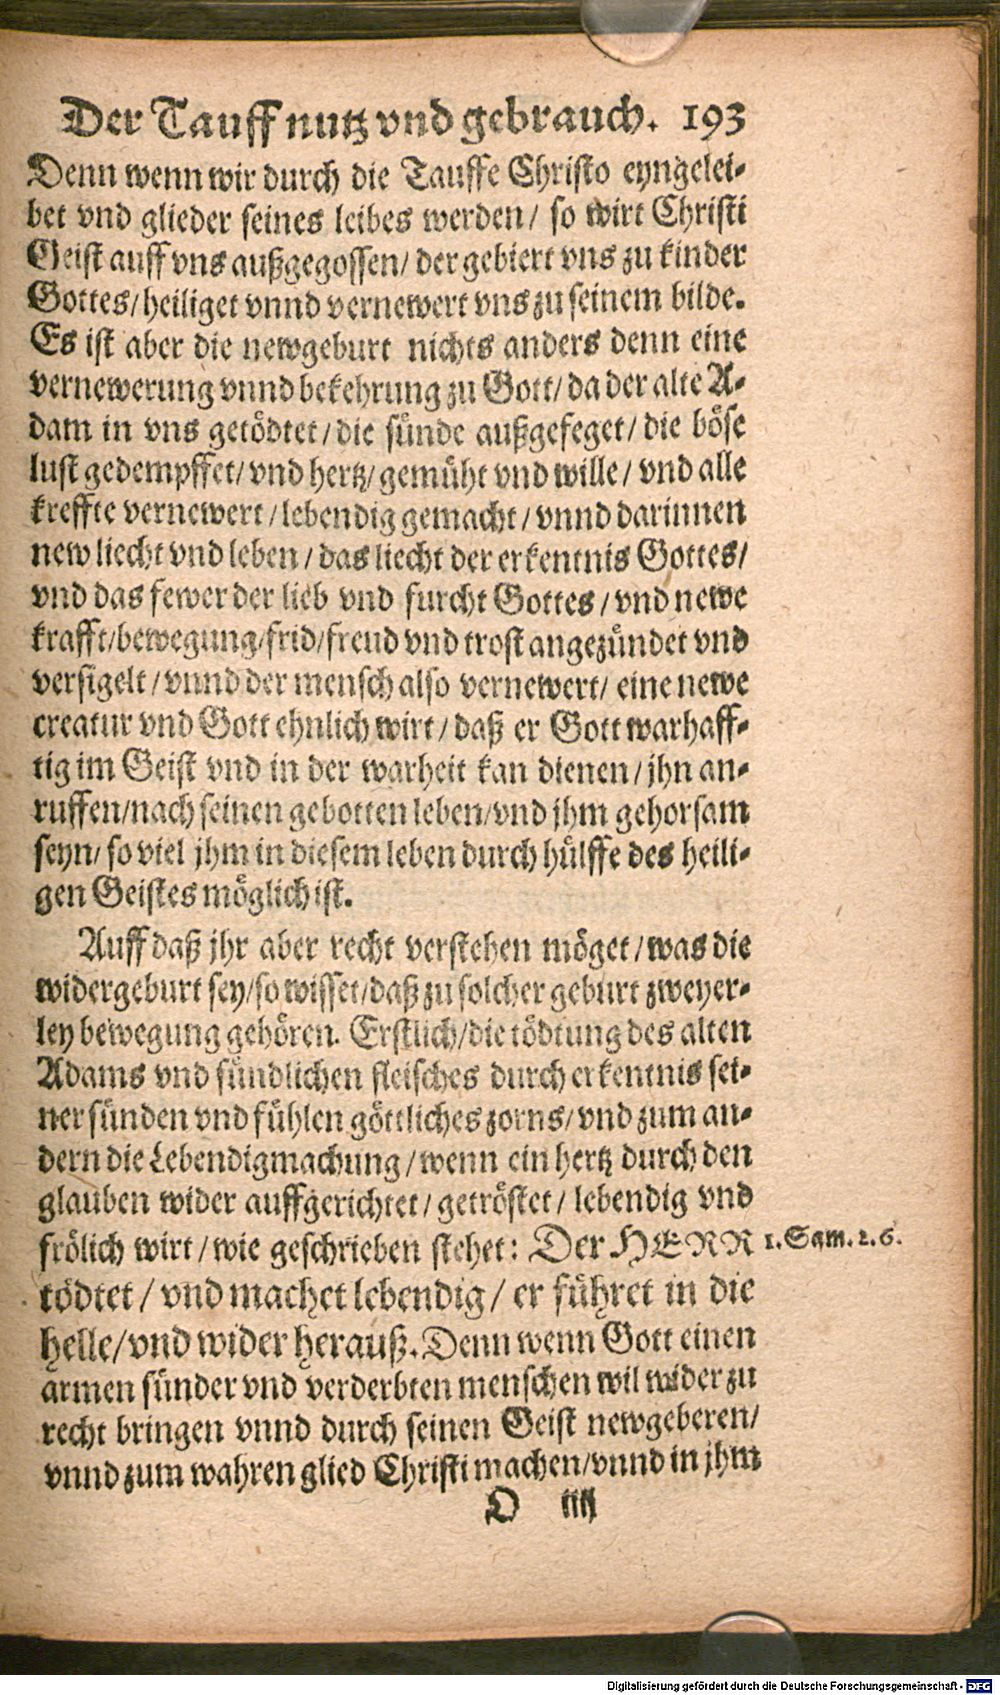 Der Tauff nutz vnd gebrauch. 193
Denn wenn wir durch die Tauffe Christo eyngelei-
bet vnd glieder seines leibes werden/ so wirt Christi
Geist auff vns außgegossen/ der gebiert vns zu kinder
Gottes/ heiliget vnnd vernewert vns zu seinem bilde.
Es ist aber die newgeburt nichts anders denn eine
vernewerung vnnd bekehrung zu Gott/ da der alte A-
dam in vns getödtet/ die sünde außgefeget/ die böse
lust gedempffet/ vnd hertz/ gemüht vnd wille/ vnd alle
kreffte vernewert/ lebendig gemacht/ vnnd darinnen
new liecht vnd leben/ das liecht der erkentnis Gottes/
vnd das fewer der lieb vnd furcht Gottes/ vnd newe
krafft/ bewegung/ frid/ freud vnd trost angezündet vnd
versigelt/ vnnd der mensch also vernewert/ eine newe
creatur vnd Gott ehnlich wirt/ daß er Gott warhaff-
tig im Geist vnd in der warheit kan dienen/ jhn an-
ruffen/ nach seinen gebotten leben/ vnd jhm gehorsam
seyn/ so viel jhm in diesem leben durch hülffe des heili-
gen Geistes möglich ist.
Auff daß jhr aber recht verstehen möget/ was die
widergeburt sey/ so wisset/ daß zu solcher geburt zweyer-
ley bewegung gehören. Erstlich/ die tödtung des alten
Adams vnd sündlichen fleisches durch erkentnis sei-
ner sünden vnd fühlen göttliches zorns/ vnd zum an-
dern die Lebendigmachung/ wenn ein hertz durch den
glauben wider auffgerichtet/ getröstet/ lebendig vnd
frölich wirt/ wie geschrieben stehet: Der HERR 1. Sam. 2. 6.
tödtet/ vnd machet lebendig/ er führet in die
helle/ vnd wider herauß. Denn wenn Gott einen
armen sünder vnd verderbten menschen wil wider zu
recht bringen vnnd durch seinen Geist newgeberen/
vnnd zum wahren glied Christi machen/ vnnd in jhm
O iiij
Digitalisierung gefördert durch die Deutsche Forschungsgemeinschaft - DFG